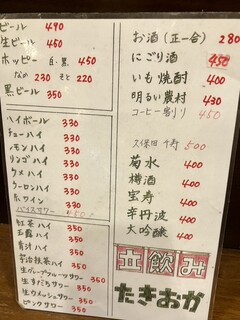 ビール 490
生ビール 450
ホッピー 白・黒 450
なか 230 そと 220
黒ビール 350
ハイボール 330
チューハイ 330
レモンハイ 330
リンゴハイ 330
ウメハイ 330
ウーロンハイ 330
赤ワイン 330
バイスサワー
紅茶ハイ 350
玉露ハイ 350
青汁ハイ 350
宇治抹茶ハイ 350
生グレープフルーツサワー 350
生すだちサワー 350
生カルメッシュサワー 350
ピンクサワー 350
お酒(正一合) 280
にごり酒 450
いも焼酎 400
明るい農村 430
コーヒー割り 450
久保田 千寿 500
菊水 400
樽酒 400
宝寿 400
辛丹波 400
大吟醸 400
立飲み
たきおか